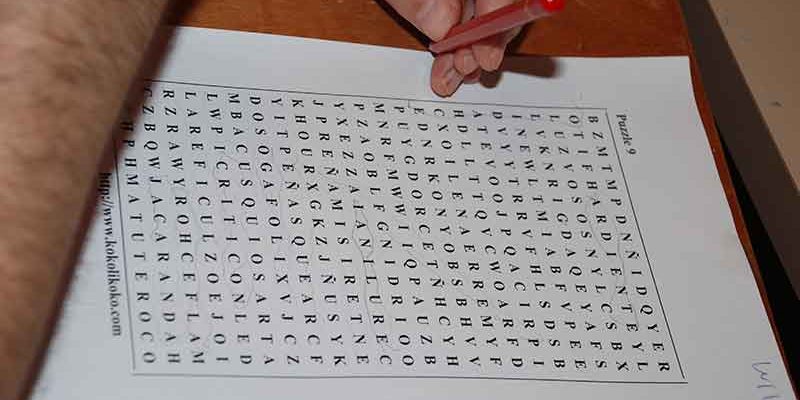 Puzzle 9
B Z M T M P D N Ñ I D Q Y E R
O T I F H A R D I E N T E Y L
L U Z V O S O S N Y L C S B X
L V K N R I G D A Q E Y A F S
I N E W L T M I A B F V P E E
D V Y Y T R R V F H L S D S B
A T E V O O J P Q A C I R P I
H D L L T T Q V C W O A R F D
C X O I L E N A E R R E M Y F
E D N R K O N Y O B S B H V V
P U Y G D O R C E T Ñ H C Y H
M N R F M W W I I Q P A U Z B
P Z A O B L F G N I D R I O O
Y X E Z Z A I A N I L U R E C
J P R E Ñ A M I S I R E T N E
K H O U R X G K Z J Ñ U S Y K
Y I T P E Ñ A S Q U E A R C F
D O S O G A F O L I X V J C Z
M B A C U S Q U I O S A R T A
L W P I C R I T I C O N L E D
L A R E F I C U L Z O E J O I
R Z R A W Y R O H C E F L A M
C Z B Q W J A C A R A N D A H
H P H M A T U T E R O C O
http://www.kokolikoko.com